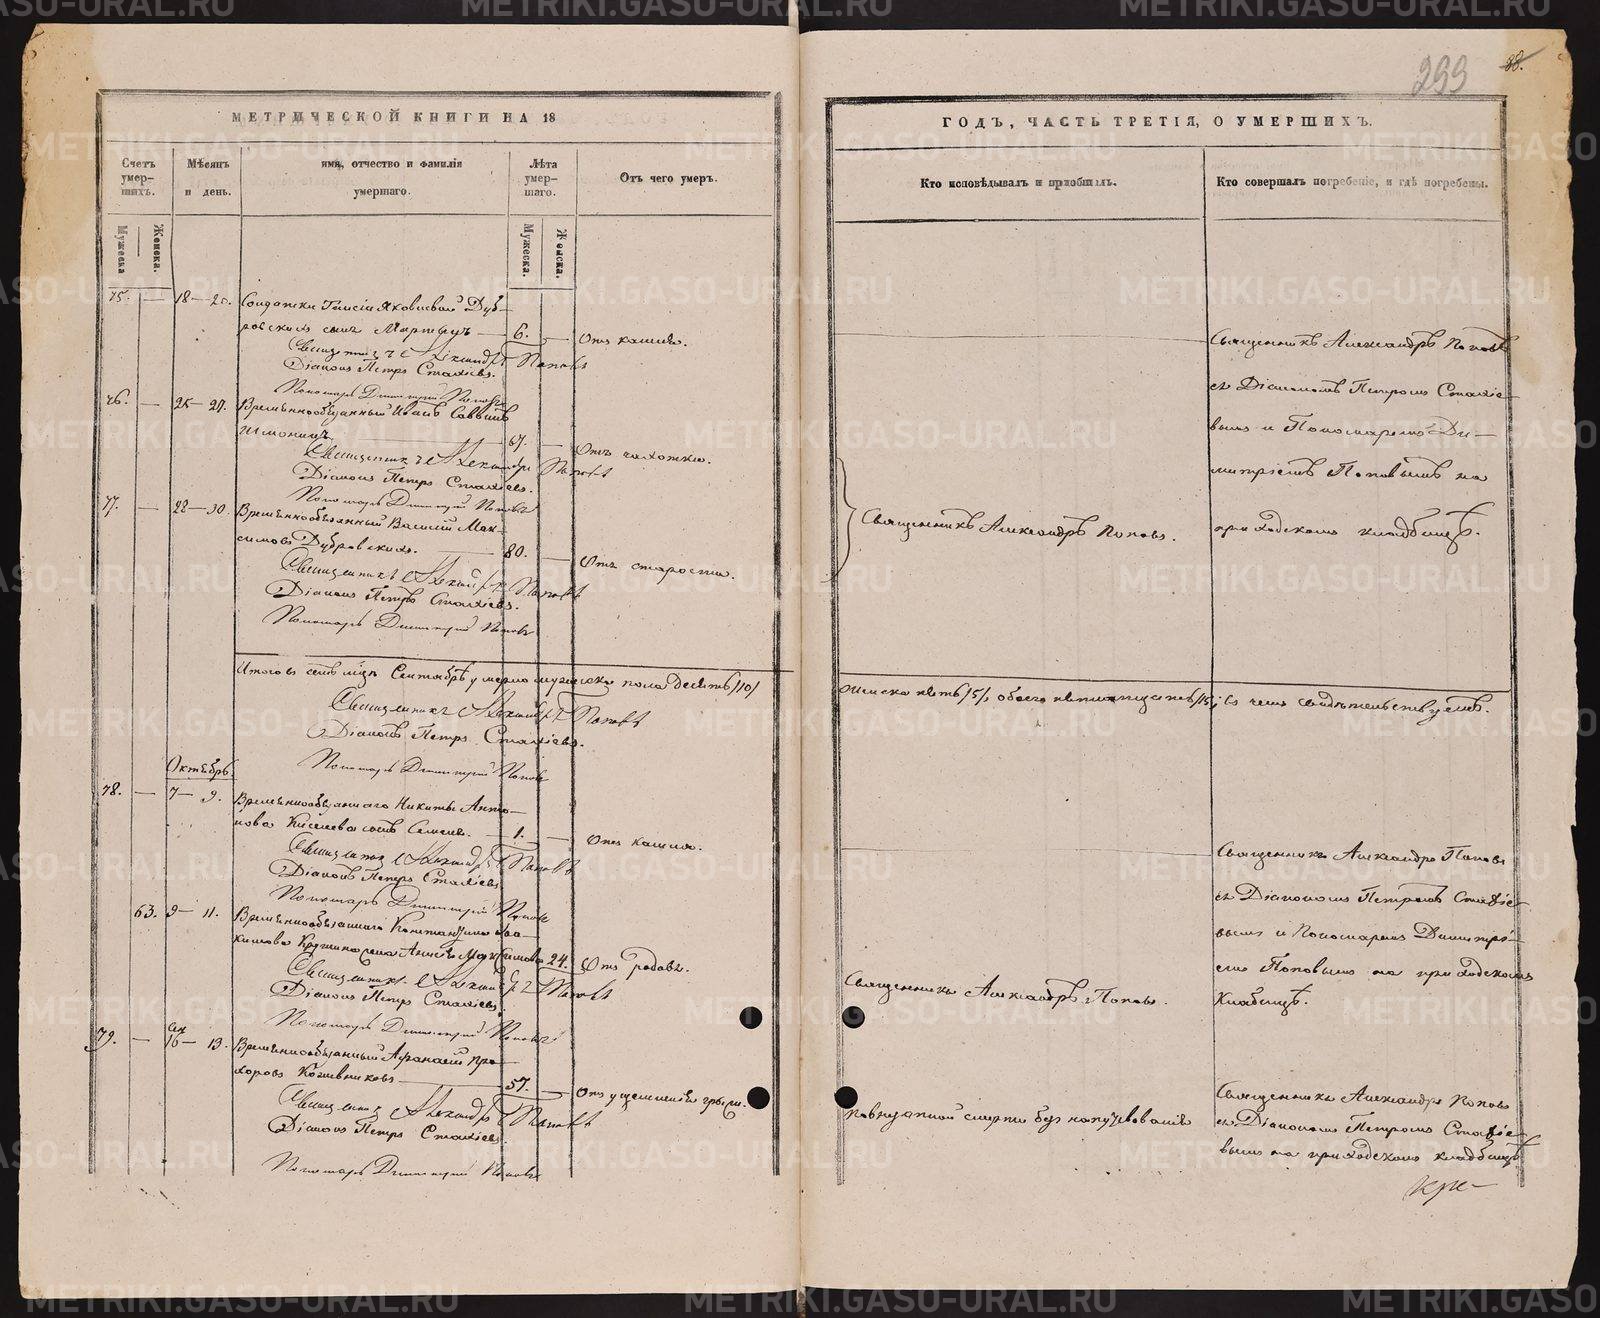 299
88.
МЕТРИЧЕСКОЙ КНИГИ НА 18
Счетъ умер-шихъ.
Мѣсяцъ и день.
имя, отчество и фамилія умершаго.
Лѣта умер-шаго.
Отъ чего умеръ.
Мужеска
Женска.
Мужеска.
Женска.
75. — 18—20. Солдатки Таисіи Яковлевой Дуб-
ровскихъ сынъ — 6. — Отъ кашля.
Священникъ Александръ Поповъ
Діаконъ Петръ Стахіевъ.
Пономарь Димитрій Поповъ
76. — 25—27. Временнообязанный Иванъ Саввинъ
67. — Отъ чахотки.
Священникъ Александръ Поповъ
Діаконъ Петръ Стахіевъ.
Пономарь Димитрій Поповъ
77. — 28—30. Временнообязанный Василій Мак-
симовъ Дубровскихъ. — 80. — Отъ старости.
Священникъ Александръ Поповъ
Діаконъ Петръ Стахіевъ.
Пономарь Димитрій Поповъ
Итого въ семъ м҃цѣ Сентябрѣ умерло мужеска пола десять /10/
Священникъ Александръ Поповъ
Діаконъ Петръ Стахіевъ.
Пономарь Димитрій Поповъ
Октябрь
78. — 7—9. Временнообязаннаго Никиты Анто-
нова Киселева сынъ Семенъ. — 1. — Отъ кашля.
Священникъ Александръ Поповъ
Діаконъ Петръ Стахіевъ
Пономарь Димитрій Поповъ
63. 9—11. Временнообязаннаго Константина Іоа-
кимова жена Анисья Максимова 24. Отъ родовъ.
Священникъ Александръ Поповъ
Діаконъ Петръ Стахіевъ.
Пономарь Димитрій Поповъ
79. — 16—13. Временнообязанный Афанасій Про-
хоровъ Кожевниковъ — 57. — Отъ ущемленія грыжи.
Священникъ Александръ Поповъ
Діаконъ Петръ Стахіевъ
Пономарь Димитрій Поповъ
ГОДЪ, ЧАСТЬ ТРЕТІЯ, О УМЕРШИХЪ.
Кто исповѣдывалъ и пріобщалъ.
Кто совершалъ погребеніе, и гдѣ погребены.
Священникъ Александръ Поповъ
съ Діакономъ Петромъ Стахіе-
вымъ и Пономаремъ Ди-
митріемъ Поповымъ на
Священникъ Александръ Поповъ.
приходскомъ кладбищѣ.
женска пять /5/, обоего пятнадцать /15/; въ чемъ свидѣтельствуемъ.
Священникъ Александръ Поповъ
съ Діакономъ Петромъ Стахіе-
вымъ и Пономаремъ Димитрі-
емъ Поповымъ на приходскомъ
Священникъ Александръ Поповъ.
кладбищѣ.
Священникъ Александръ Поповъ
съ Діакономъ Петромъ Стахіе-
вымъ на приходскомъ кладбищѣ
METRIKI.GASO-URAL.RU